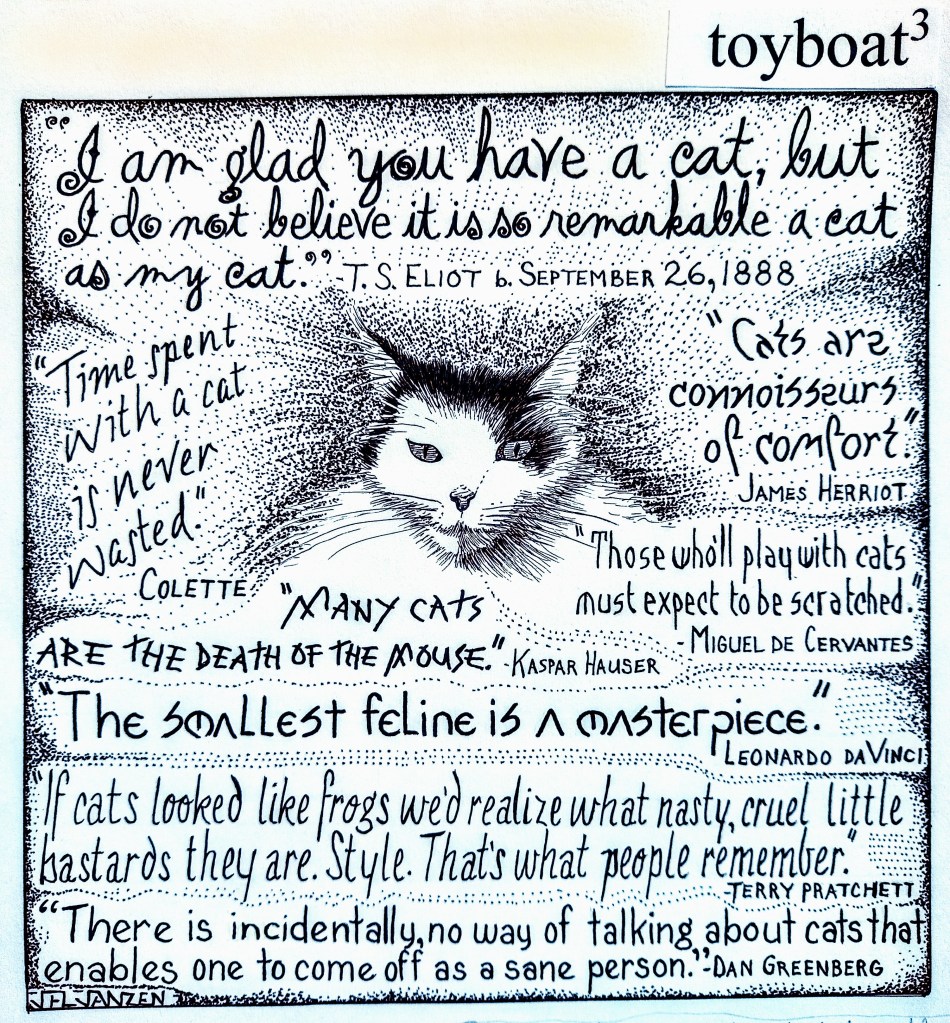 toyboat³
"I am glad you have a cat, but
I do not believe it is so remarkable a cat
as my cat." -T. S. ELIOT b. SEPTEMBER 26, 1888
"Time spent
with a cat
is never
wasted."
COLETTE
"Cats are
connoisseurs
of comfort."
JAMES HERRIOT
"Those who'll play with cats
must expect to be scratched."
-MIGUEL DE CERVANTES
"MANY CATS
ARE THE DEATH OF THE MOUSE." -KASPAR HAUSER
"The smallest feline is a masterpiece."
LEONARDO DAVINCI
"If cats looked like frogs we'd realize what nasty, cruel little
bastards they are. Style. That's what people remember."
-TERRY PRATCHETT
"There is incidentally, no way of talking about cats that
enables one to come off as a sane person." -DAN GREENBERG
JHL JANZEN